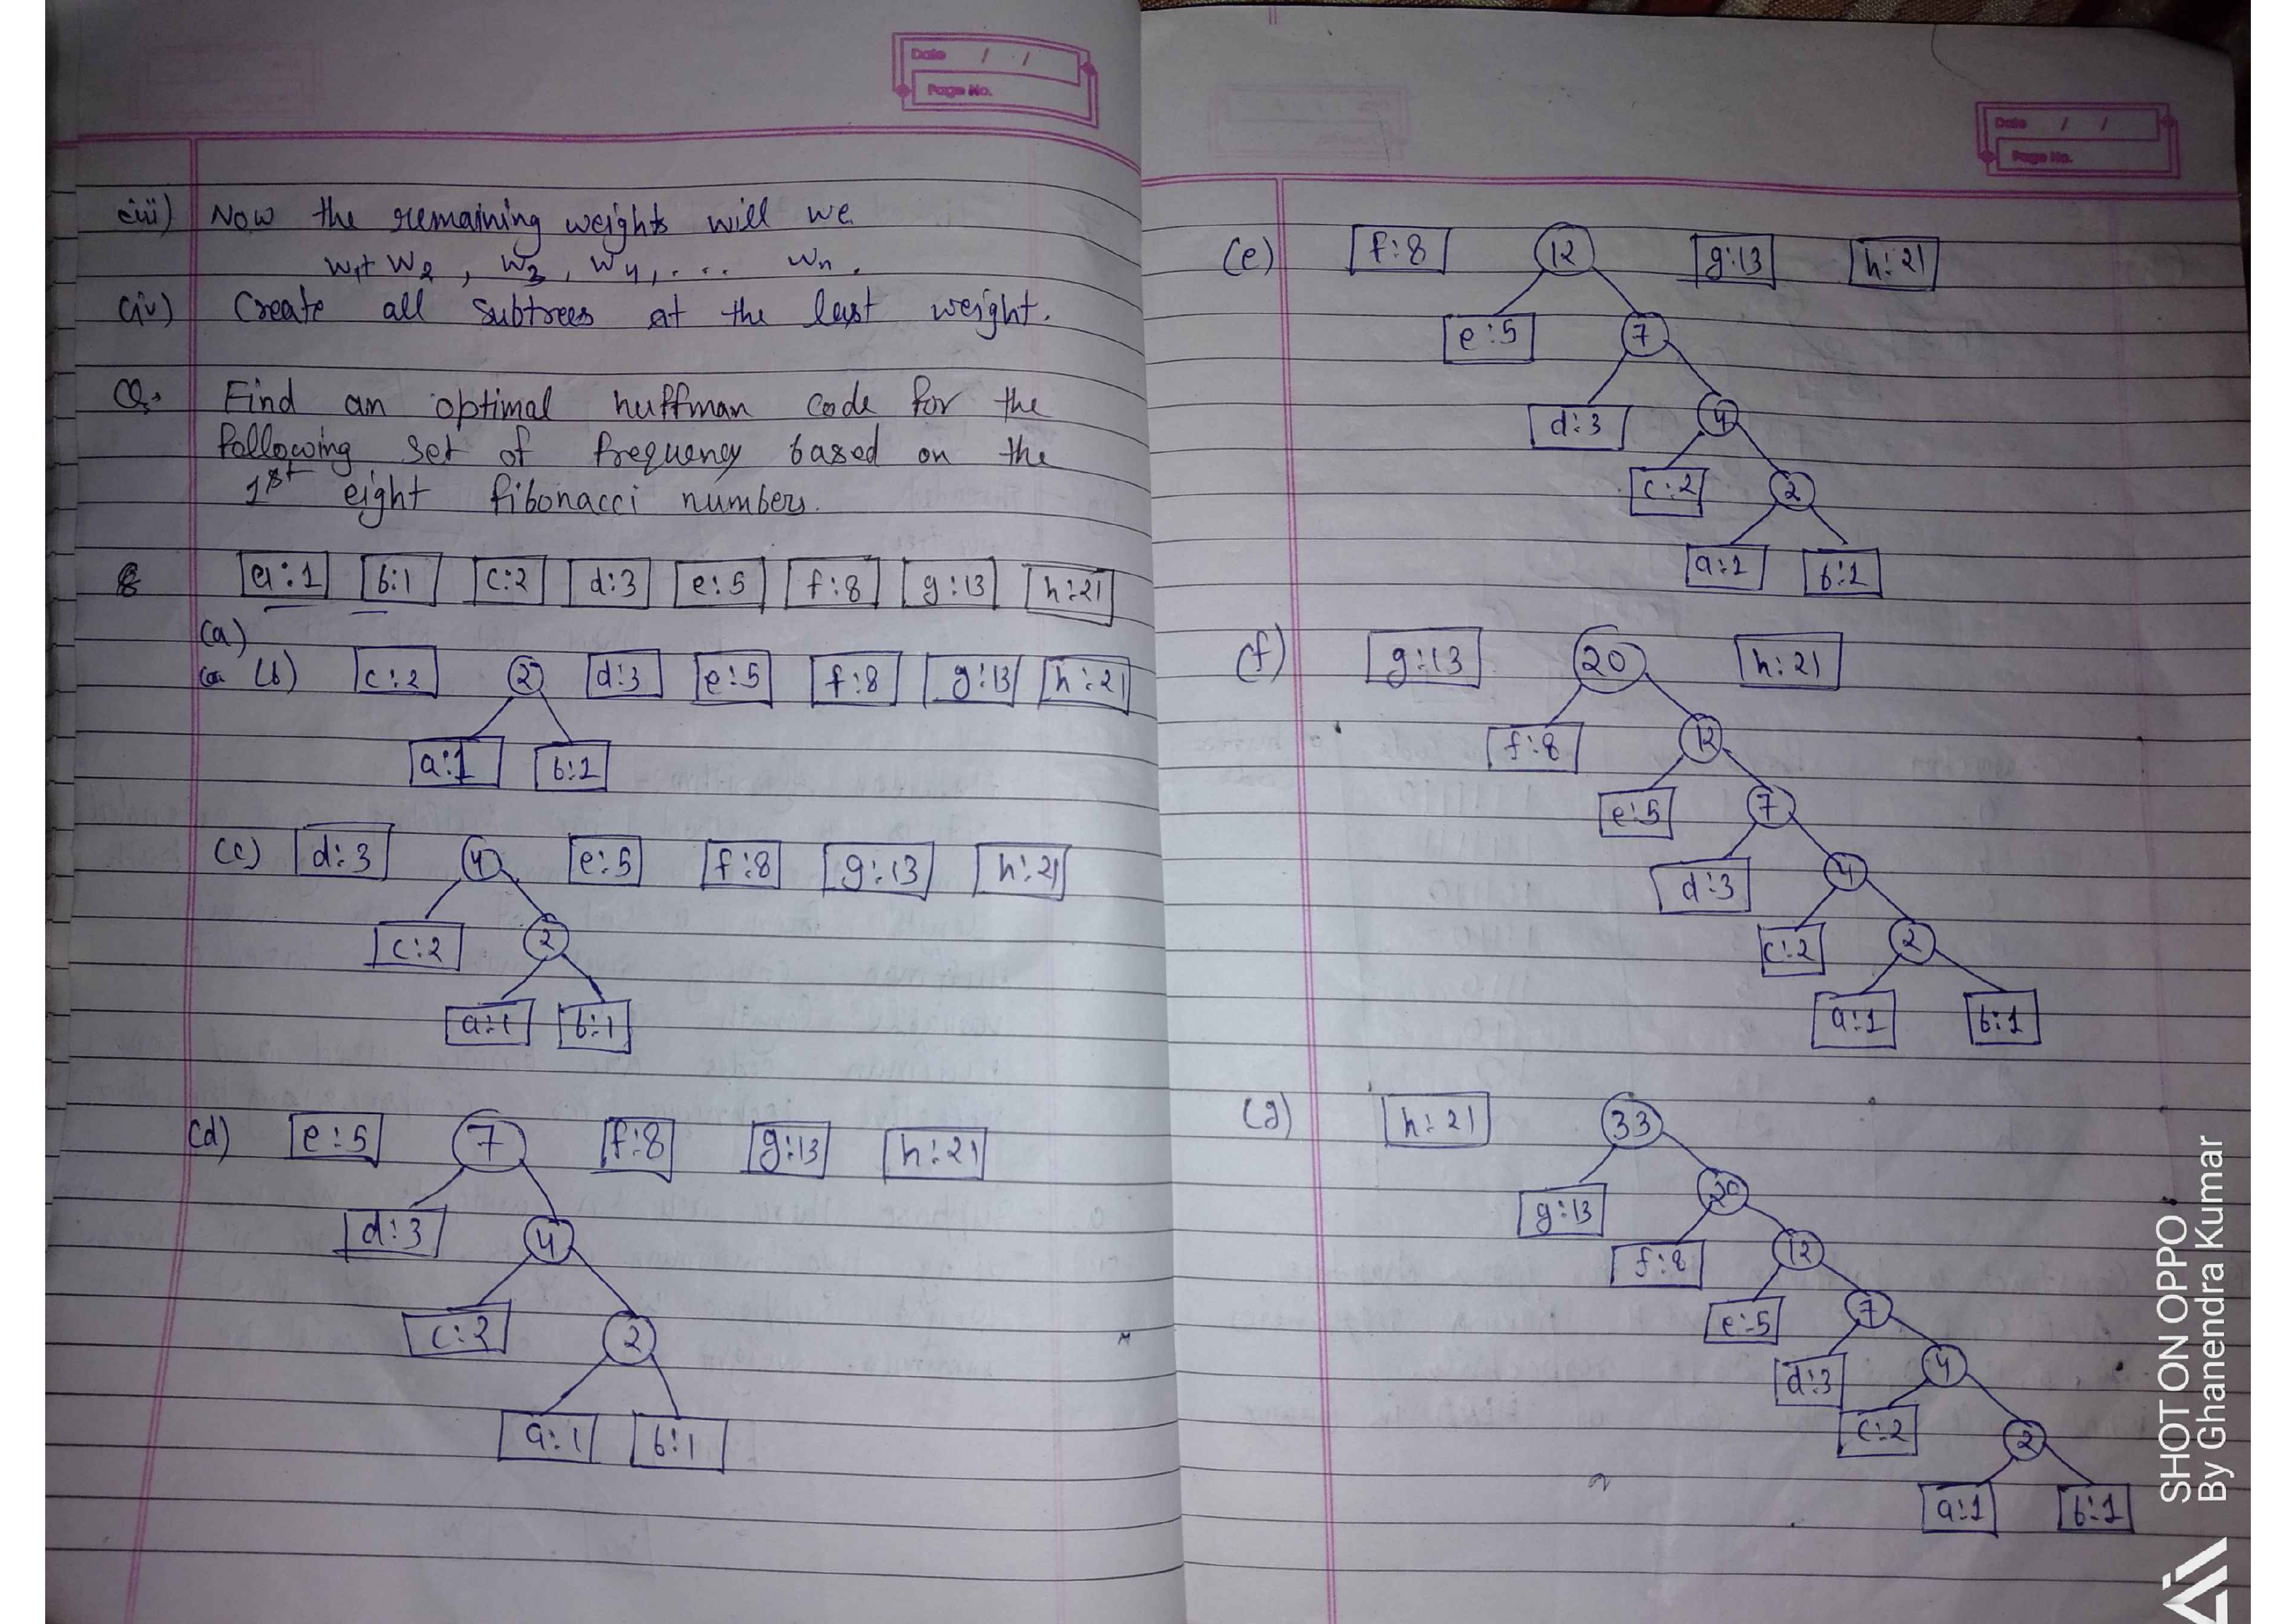 Date / /
Page No.
(iii) Now the remaining weights will we
w1+ w2 , w3 , w4, . . . wn .
(iv) Create all subtrees at the last weight.
Q. Find an optimal huffman code for the
following set of frequency based on the
1st eight fibonacci numbers.
a:1 b:1 c:2 d:3 e:5 f:8 g:13 h:21
(a)
(b) c:2 2 d:3 e:5 f:8 g:13 h:21
a:1 b:1
(c) d:3 4 e:5 f:8 g:13 h:21
c:2 2
a:1 b:1
(d) e:5 7 f:8 g:13 h:21
d:3 4
c:2 2
a:1 b:1
Date / /
Page No.
(e) f:8 12 g:13 h:21
e:5 7
d:3 4
c:2 2
a:1 b:1
(f) g:13 20 h:21
f:8 12
e:5 7
d:3 4
c:2 2
a:1 b:1
(g) h:21 33
g:13 20
f:8 12
e:5 7
d:3 4
c:2 2
a:1 b:1
SHOT ON OPPO
By Ghanendra Kumar